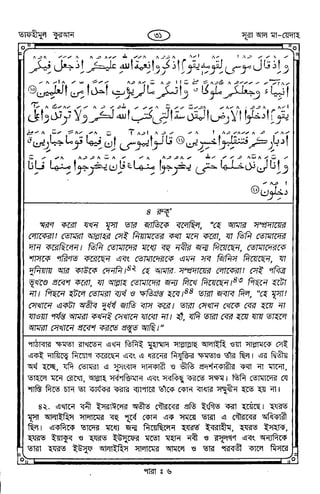 তাফহীমুল কুরআন ৩১ সূরা আল মা-য়েদাহ
وَإِذْ قَالَ مُوسَىٰ لِقَوْمِهِ يَٰقَوْمِ اذْكُرُوا نِعْمَةَ اللَّهِ عَلَيْكُمْ إِذْ جَعَلَ فِيكُمْ
أَنْبِيَاءَ وَجَعَلَكُمْ مُلُوكًا وَآتَىٰكُمْ مَا لَمْ يُؤْتِ أَحَدًا مِنَ الْعَٰلَمِينَ
يَٰقَوْمِ ادْخُلُوا الْأَرْضَ الْمُقَدَّسَةَ الَّتِي كَتَبَ اللَّهُ لَكُمْ وَلَا تَرْتَدُّوا عَلَىٰ
أَدْبَارِكُمْ فَتَنْقَلِبُوا خَٰسِرِينَ قَالُوا يَٰمُوسَىٰ إِنَّ فِيهَا قَوْمًا جَبَّارِينَ
وَإِنَّا لَنْ نَدْخُلَهَا حَتَّىٰ يَخْرُجُوا مِنْهَا فَإِنْ يَخْرُجُوا مِنْهَا فَإِنَّا
دَٰخِلُونَ
৪ রুকূ'
স্মরণ করো যখন মূসা তার জাতিকে বলেছিল, "হে আমার সম্প্রদায়ের
লোকেরা! তোমরা আল্লাহর সেই নিয়ামতের কথা মনে করো, যা তিনি তোমাদের
দান করেছিলেন। তিনি তোমাদের মধ্যে বহু নবীর জন্ম দিয়েছেন, তোমাদেরকে
শাসকে পরিণত করেছেন এবং তোমাদেরকে এমন সব জিনিস দিয়েছেন, যা
দুনিয়ায় আর কাউকে দেননি।৪২ হে আমার সম্প্রদায়ের লোকেরা! সেই পবিত্র
ভূখণ্ডে প্রবেশ করো, যা আল্লাহ তোমাদের জন্য লিখে দিয়েছেন।৪৩ পিছনে হটো
না। পিছনে হটলে তোমরা ব্যর্থ ও ক্ষতিগ্রস্ত হবে।৪৪ তারা জবাব দিল, "হে মূসা!
সেখানে একটা অতীব দুর্ধর্ষ জাতি বাস করে। তারা সেখান থেকে বের হয়ে না
যাওয়া পর্যন্ত আমরা কখনই সেখানে যাবো না। হাঁ, যদি তারা বের হয়ে যায় তাহলে
আমরা সেখানে প্রবেশ করতে প্রস্তুত আছি।"
পাঠাবার ক্ষমতা রাখতেন এখন তিনিই মুহাম্মাদ সাল্লাল্লাহু আলাইহি ওয়া সাল্লামকে সেই
একই দায়িত্বে নিয়োগ করেছেন এবং এ ধরনের নিযুক্তির ক্ষমতাও তাঁর ছিল। এর দ্বিতীয়
অর্থ হচ্ছে, যদি তোমরা এ সুসংবাদ দানকারী ও ভীতি প্রদর্শনকারীর কথা না মানো,
তাহলে মনে রেখো, আল্লাহ সর্বশক্তিমান এবং সবকিছু করতে সক্ষম। তিনি তোমাদের যে
শাস্তি দিতে চান তা কার্যকর করার ব্যাপারে তাঁকে কোন বাধার সম্মুখীন হতে হয় না।
৪২. এখানে বনী ইসরাঈলের অতীত গৌরবের প্রতি ইংগিত করা হয়েছে। হযরত
মূসা আলাইহিস সালামের বহু পূর্বে কোন এক সময়ে তারা এ গৌরবের অধিকারী
ছিল। একদিকে তাদের মধ্যে জন্ম নিয়েছিলেন হযরত ইবরাহীম, হযরত ইসহাক,
হযরত ইয়াকুব ও হযরত ইউসুফের মতো মহান নবী ও রসূলগণ এবং অন্যদিকে
তারা হযরত ইউসুফ আলাইহিস সালামের আমলে ও তার পরবর্তী কালে মিসরে
পারা : ৬